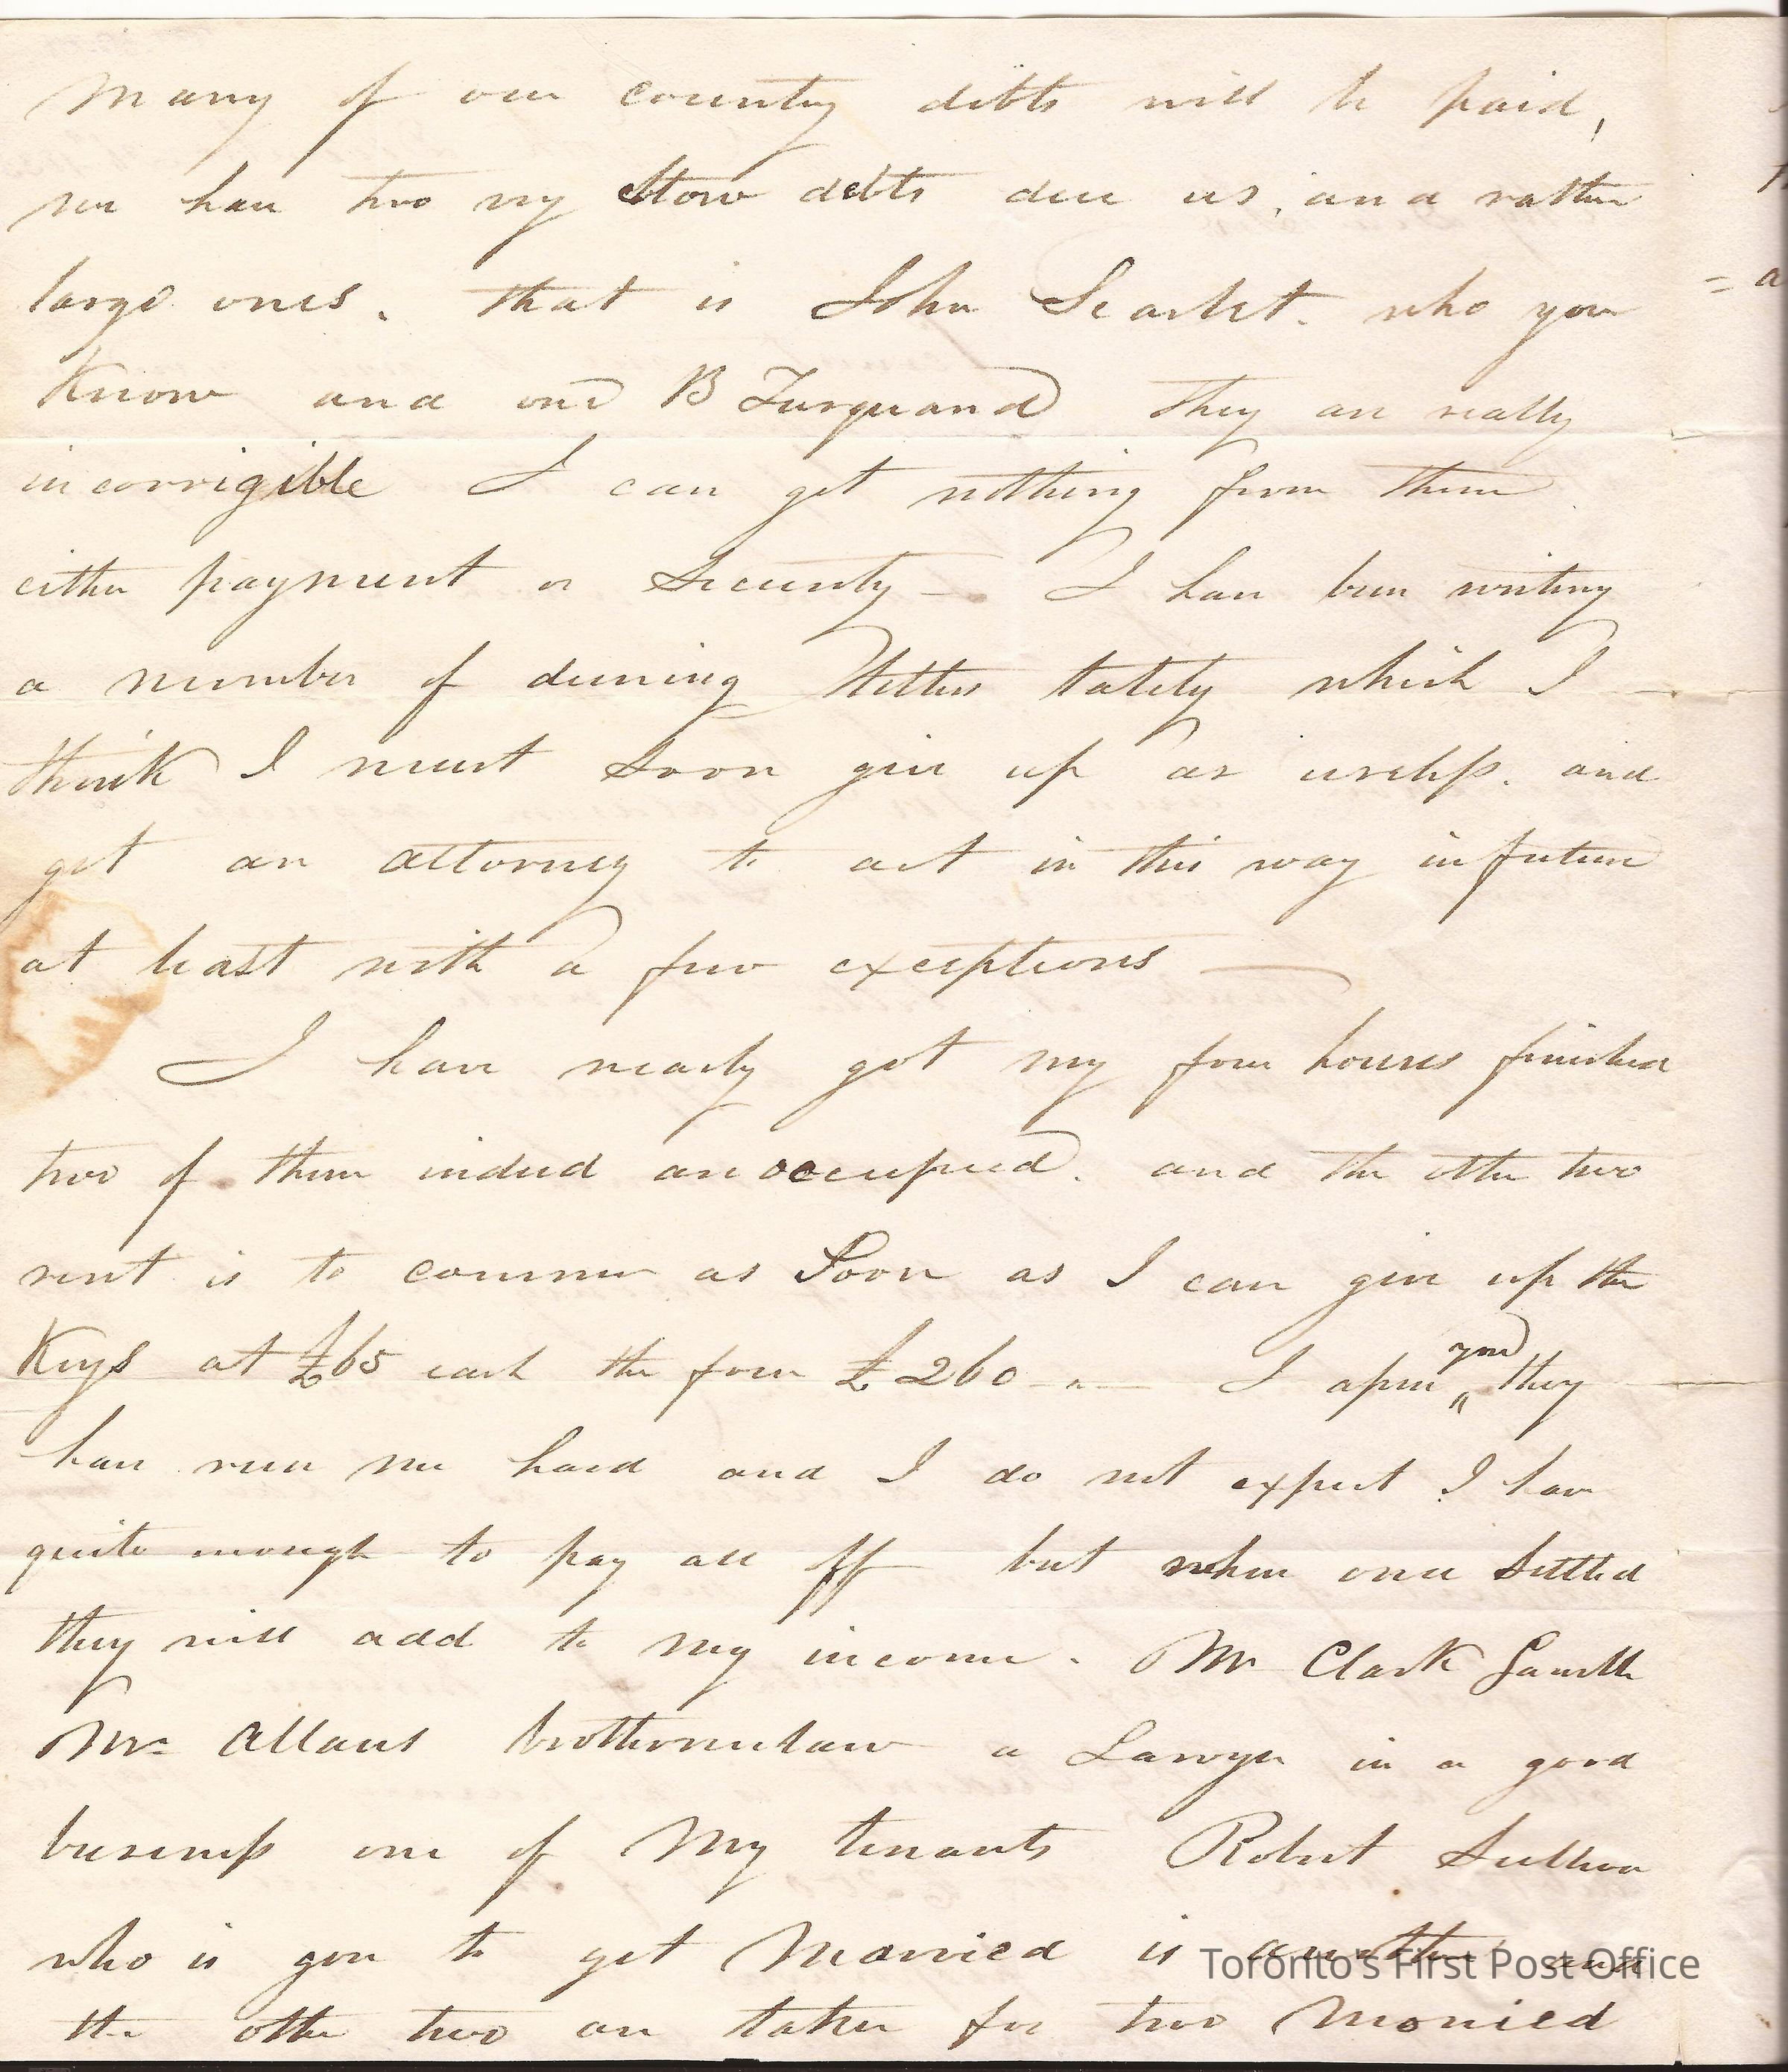 Many of our country debts will be paid,
we have two very slow debts due us, and rather
large ones. that is John Scarlet. who you
Know and one B Turquand they are really
incorrigible I can get nothing from them
either payment or Security - I have been writing
a number of duning letters lately which I
think I must Soon give up as useless. and
get an attorney to act in this way in future
at least with a few exceptions —
I have nearly got my four houses finished
two of them indeed are occupied. and the other two
rent is to commence as Soon as I can give up the
Keys at £65 each the four £260 - " - I assure you they
have run me hard and I do not expect I have
quite enough to pay all off but when once Settled
they will add to my income. Mr Clark Gamble
Mrs Allans brotherinlaw a Lawyer in a good
business one of My tenants Robert Sullivan
who is gone to get Married is another and
the other two are taken for two Married
Toronto's First Post Office
= a